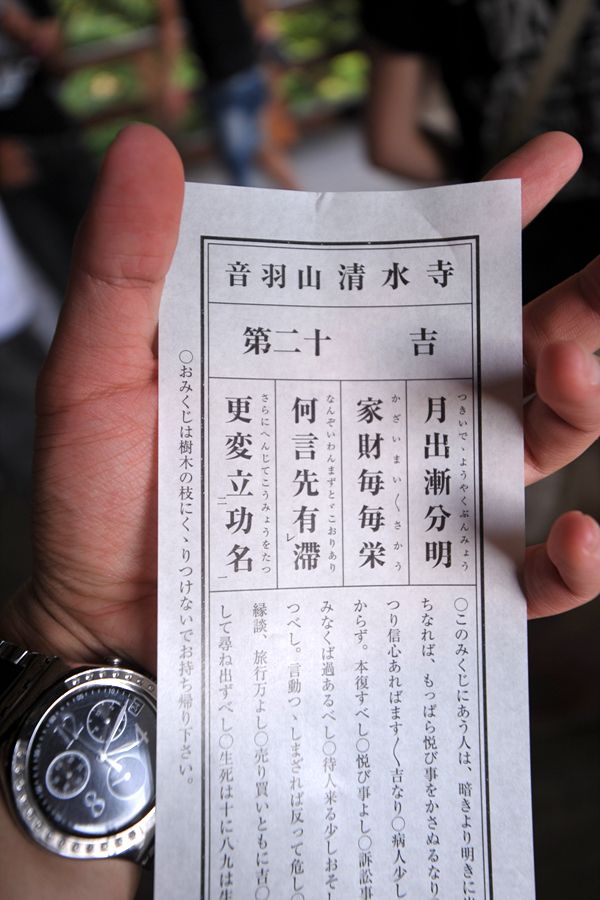 音羽山清水寺
第二十 吉
つきいでゝようやくぶんみょう
月出漸分明
かざいまい〱さかう
家財毎毎栄
なんぞいわんまずとゞこおりあり
何言先有レ滞
さらにへんじてこうみょうをたつ
更変立二功名一
〇このみくじにあう人は、暗きより明きに出
ちなれば、もっぱら悦び事をかさぬるなり〇
つり信心あればます〱吉なり〇病人少し
からず。本復すべし〇悦び事よし〇訴訟事
みなくば過あるべし〇待人来る少しおそし
つべし。言動つゝしまざれば反って危し〇
縁談、旅行万よし〇売り買いともに吉〇
して尋ね出ずべし〇生死は十に八九は生
〇おみくじは樹木の枝にくゝりつけないでお持ち帰り下さい。
12
4
8